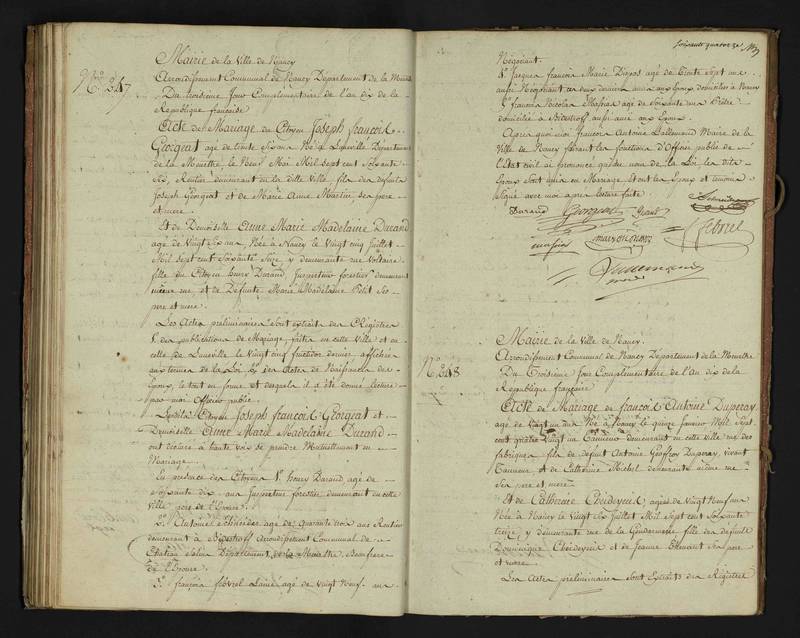 Nro. 247
Mairie de la Ville de Nancy
Arrondissement Communal de Nancy Département de la Meurthe
Du troisieme Jour Complementaire de l'an dix de la
Republique francaise
Acte de Mariage du Citoyen Joseph francois
Georgeat agé de trente Six ans Né à Luneville Departement
de la Meurthe, le Neuf Mai Mil sept cent Soixante
Six, Rentier demeurant en la dite Ville, fils des defunts
Joseph Georgeat et de Marie Anne Martin ses pere
et mere
Et de Demoiselle Anne Marie Madelaine Durand
agée de Vingt Six ans, Née à Nancy le Vingt cinq Juillet
Mil sept cent Soixante Seize, y demeurante rue Voltaire
fille du Citoyen henry Durand, Inspecteur forestier demeurant
même rue, et de Defunte Marie Madelaine Petit Ses
pere et mere
Les Actes preliminaires Sont extrait des Registres
de publications de Mariage, faites en cette Ville et en
celle de Luneville le Vingt cinq fructidor dernier, affichées
aux termes de la Loi, & des Actes de Naissances des
Epoux, le tout en forme et desquels il a été donné lecture
par moi Officier public
Lesdits Citoyen Joseph francois Georgeat et
Demoiselle Anne Marie Madelaine Durand
ont déclaré à haute voix se prendre Mutuellement en
Mariage
En presence des Citoyens 1°. henry Durand agé de
Soixante dix ans Inspecteur forestier demeurant en cette
Ville pere de l'Epouse
2°. Antoine Schneider agé de quarante trois ans Rentier
demeurant à Arrondissement Communal de
Chateau Salins Département de la Meurthe Beaufrere
de l'Epouse
3°. françois febvrel Lainé agé de Vingt Neuf ans
Soixante quatorze
Négociant.
4°. Jacques francois Marie agé de Trente Sept ans
aussi Négociant ces deux derniers amis aux Epoux domiciliés à Nancy
francois Nicolas agé de Soixante ans Prêtre
domicilié à aussi ami aux Epoux.
Après quoi moi francois Antoine Lallemand Maire de la
Ville de Nancy faisant les fonctions d'Officier public de
l'Etat civil ai prononcé qu'au nom de la Loi les dits
Epoux Sont unis en Mariage, et ont les Epoux et temoins
Signé avec moi après lecture faite
Durand Georgeat
febvrel
Lallemand
maire
No. 248
Mairie de la Ville de Nancy.
Arrondissement Communal de Nancy Département de la Meurthe
Du Troisieme Jour Complementaire de l'An dix de la
Republique francaise
Acte de Mariage de francois Antoine Duperay
agé de Vingt un ans Né à Nancy le quinze Janvier Mil Sept
cent quatre Vingt un Tanneur demeurant en cette Ville rue des
fabriques fils de defunt Antoine Geoffroy Duperay, vivant
Tanneur et de Catherine Michel demeurante même rue
Ses pere et mere
Et de Catherine agée de Vingt Neuf ans
Née à Nancy le Vingt Six Juillet Mil Sept cent Soixante
treize, y demeurante rue de la Gendarmerie fille des defunts
Dominique et de Jeanne Ses pere
et mere
Les Actes preliminaires Sont Extraits des Registres